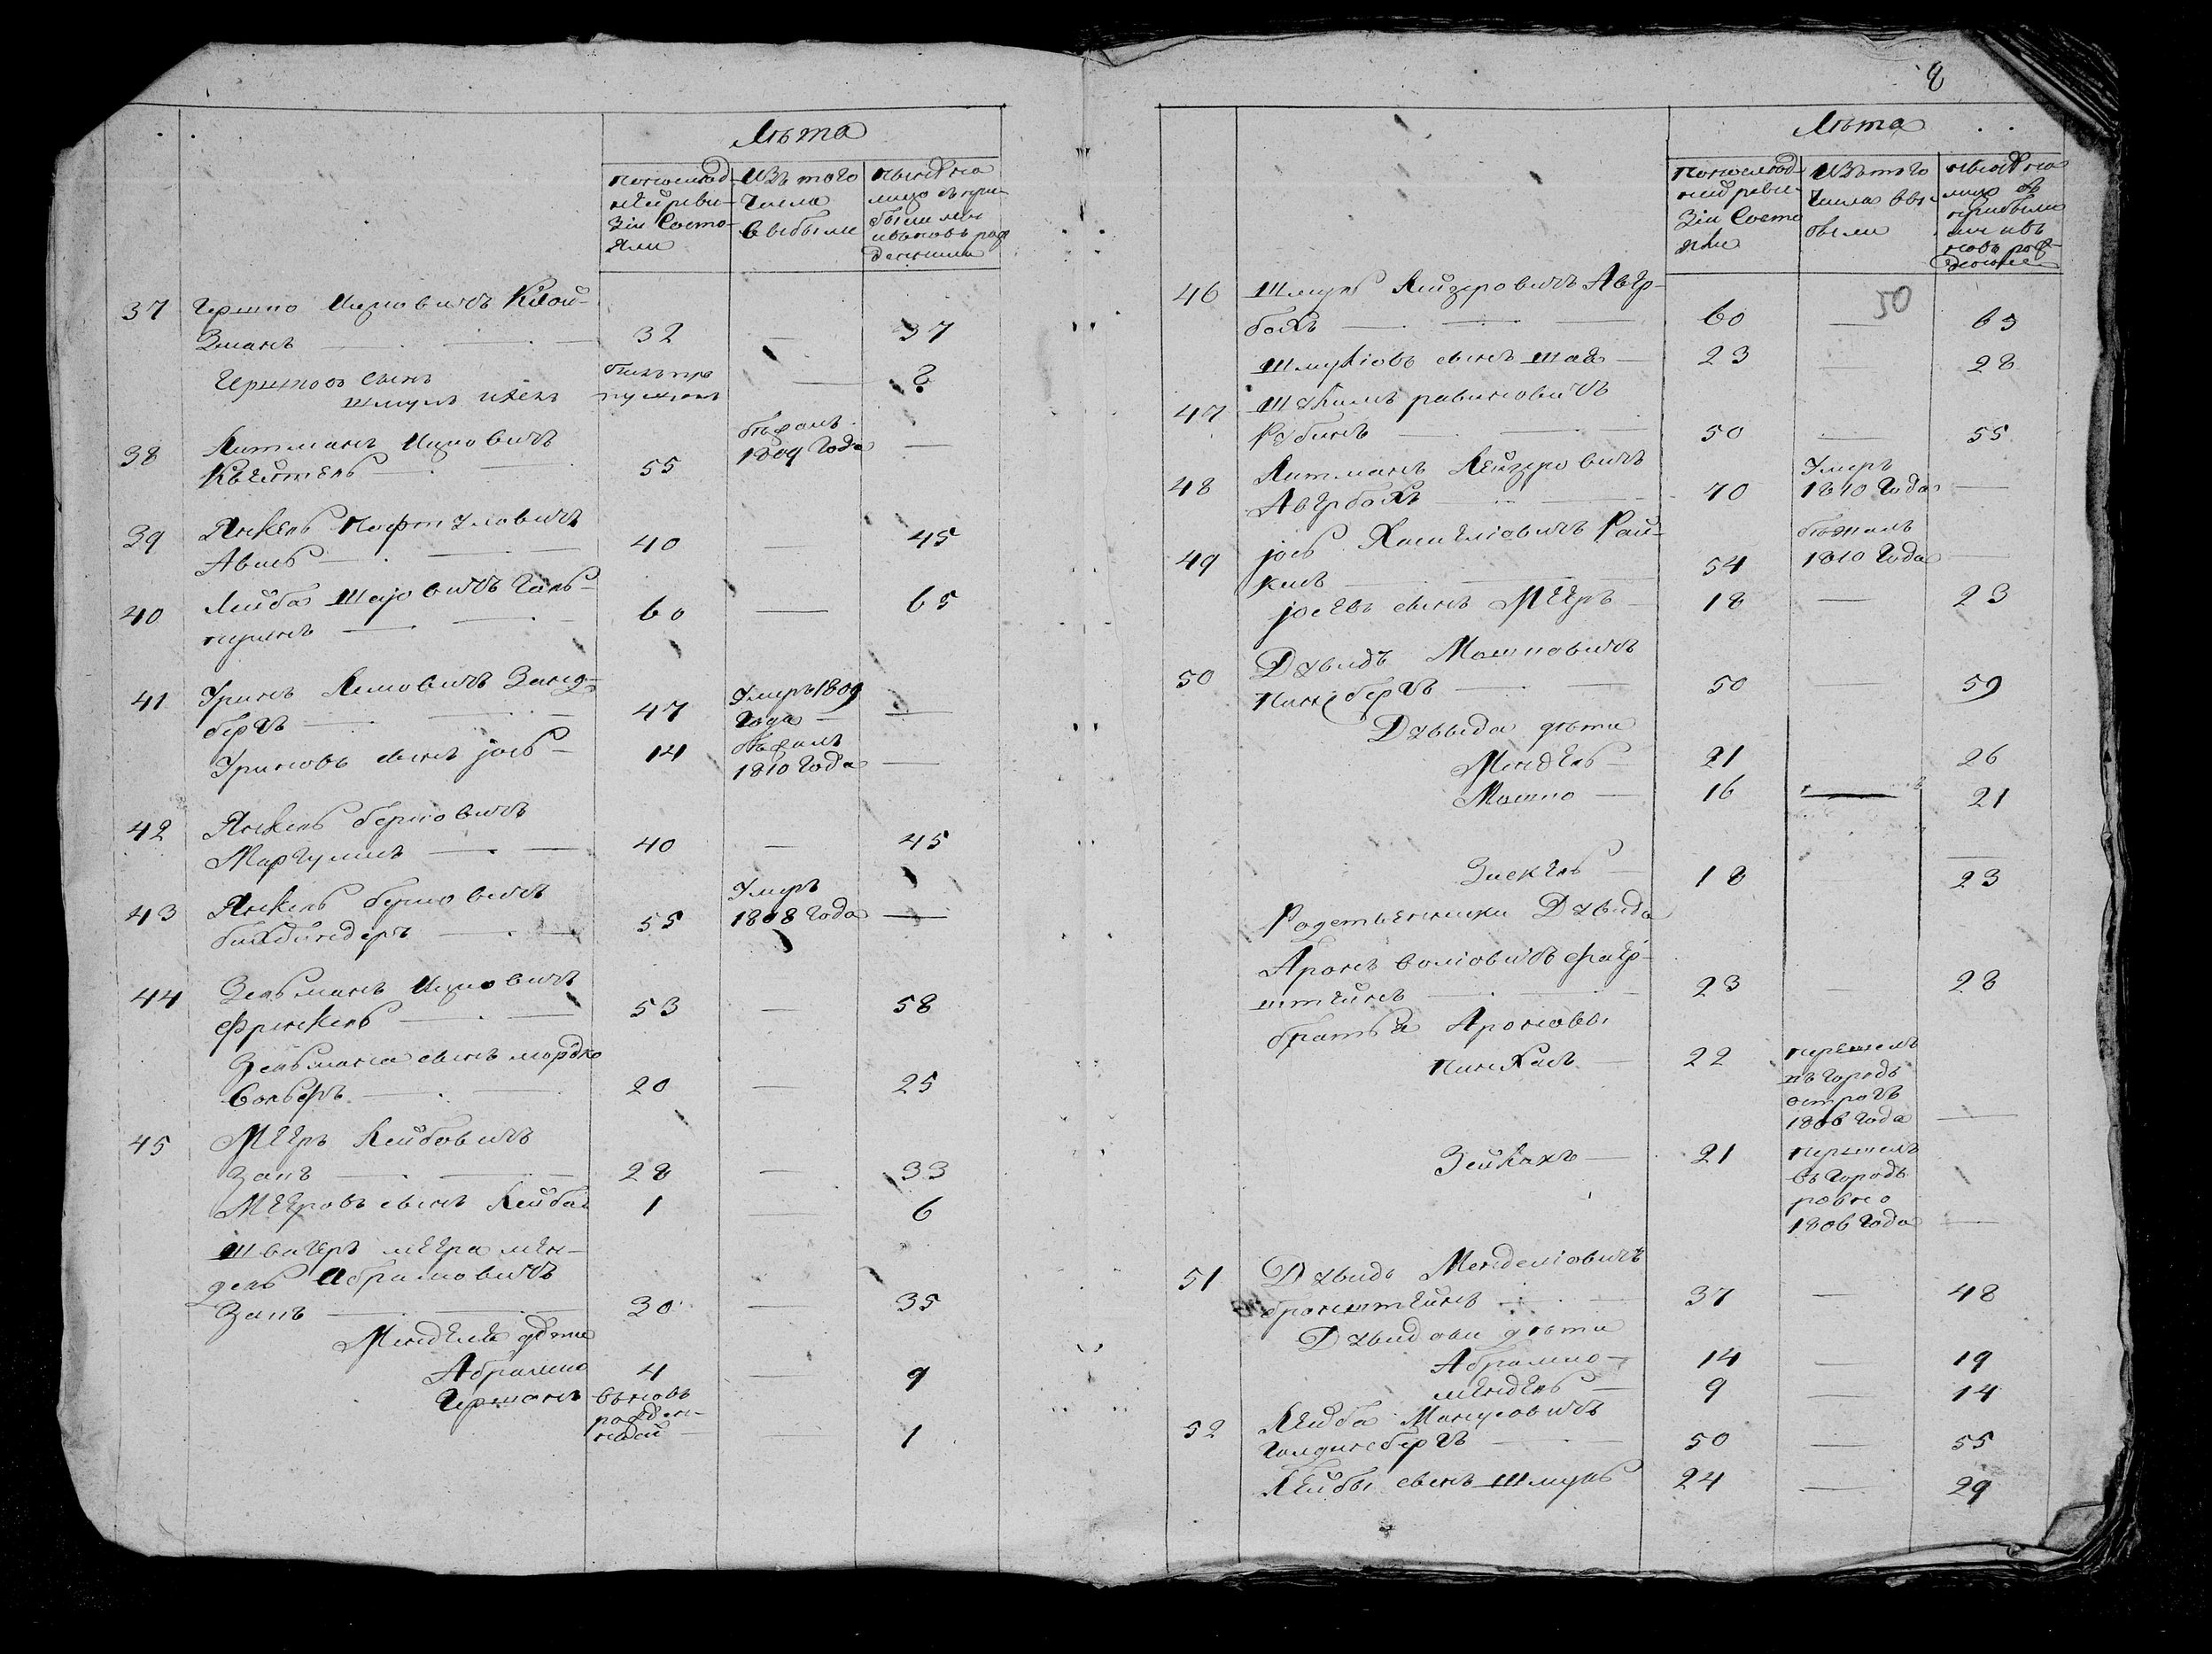 Лѣта
по последней ревизіи Состояли
изъ того Числа Выбыли
ныне на лицо съ прибылыми и вновь рожденными
37 Гершко Ицковичъ Клойзманъ — 32 — 37
Гершковъ сынъ
Шмуль Ихелъ былъ пропущенъ — 8
38 Литманъ Ицковичъ
Квейтель — 55 бѣжалъ 1809 Года —
39 Янкель Нафтуловичъ
Авись — 40 — 45
40 Лейба Шаіовичъ Гальперинъ — 60 — 65
41 Уринъ Лемовичъ Зандбергъ — 47 Умеръ 1809 Года —
Уриновъ сынъ Іось — 14 бѣжалъ 1810 Года —
42 Янкель Берковичъ
Маргулисъ — 40 — 45
43 Янкель Берковичъ
бихбиндеръ — 55 Умеръ 1808 Года —
44 Зельманъ Ицковичъ
Френкель — 53 — 58
Зельмана сынъ Мордко
Вольфъ — 20 — 25
45 Мееръ Лейбовичъ
Зацъ — 28 — 33
Мееровъ сынъ Лейба 1 — 6
Швагеръ Меера Мендель Абрамовичъ
Зацъ — 30 — 35
Менделя дѣти
Абрамко 4 — 9
Гершонъ вновь рожденной — 1
8
Лѣта
по последней ревизіи Состояли
изъ того Числа выбыли
ныне на лицо съ прибылыми и вновь рожденными
50
46 Шмуль Лейзеровичъ Авербахъ — 60 — 65
Шмуліовъ сынъ Шая — 23 — 28
47 Шулимъ рабиновичъ
Рубинъ — 50 — 55
48 Литманъ Лейзеровичъ
Авербахъ — 70 Умеръ 1810 Года —
49 Іось Хаимовичъ — 54 бѣжалъ 1810 Года —
Іосевъ сынъ Мееръ — 18 — 23
50 Давидъ Мошковичъ
Гинсбергъ — 50 — 59
Давыда дѣти
Мендель — 21 26
Мошко — 16 — 21
Зискель — 18 23
Родственники Давида
Аронъ Волковичъ Фаерштейнъ — 23 — 28
братья Ароновы
Пинхасъ — 22 перешелъ
въ Городъ
острогъ
1806 Года —
Зейликъ — 21 перешелъ
въ Городъ
ровно
1806 Года —
51 Давидъ Менделіовичъ
бронштейнъ — 37 — 48
Давидови дѣти
Абрамко — 14 — 19
Мендель — 9 — 14
52 Лейба Манусовичъ
Голдинбергъ — 50 — 55
Лейбы сынъ Шмуль 24 — 29